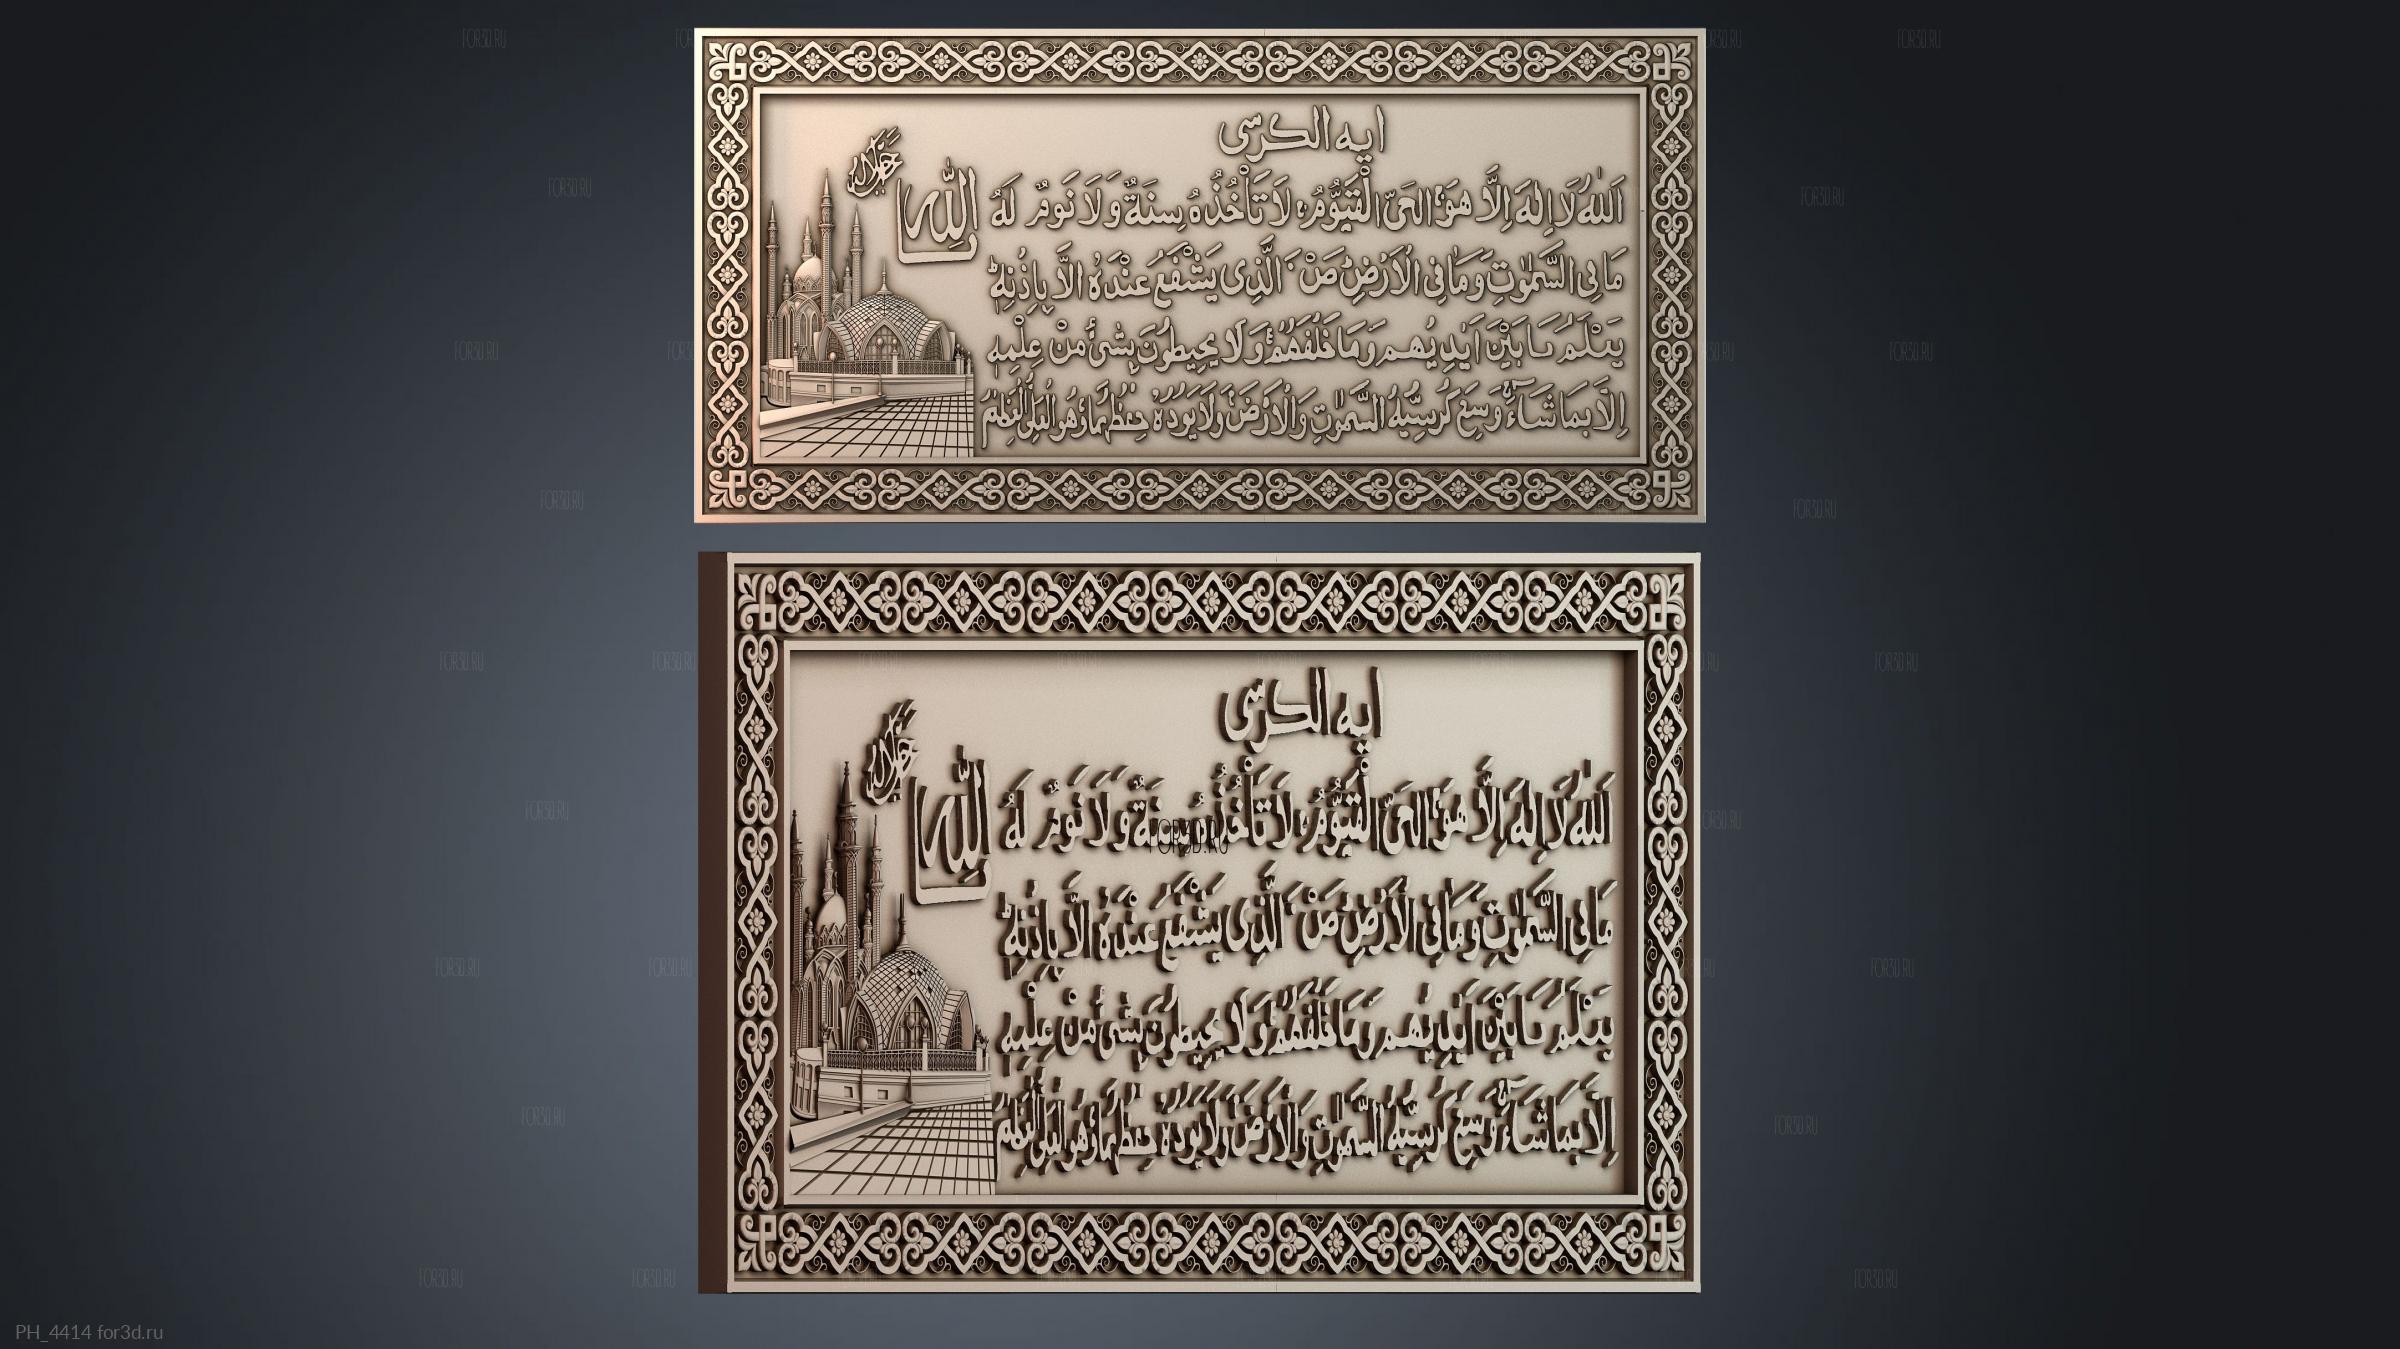 ايه الكرسى
جل جلاله
الله
اَللّٰهُ لَا اِلٰهَ اِلَّا هُوَ الحَىُّ الْقَيُّومُ لَا تَأْخُذُهُ سِنَةٌ وَلَا نَومٌ لَهُ
مَا فِى السَّمٰوٰتِ وَمَا فِى الْاَرْضِ مَنْ الَّذِى يَشْفَعُ عِنْدَهُ اِلَّا بِاِذْنِهِ
يَعْلَمُ مَا بَيْنَ اَيْدِيهِم وَمَا خَلْفَهُمْ وَلَا يُحِيطُونَ بِشَىْءٍ مِنْ عِلْمِهِ
اِلَّا بِمَا شَاءَ وَسِعَ كُرْسِيُّهُ السَّمٰوٰتِ وَالْاَرْضَ وَلَا يَؤُدُهُ حِفْظُهُمَا وَهُوَ الْعَلِىُّ الْعَظِيمُ
ايه الكرسى
جل جلاله
الله
اَللّٰهُ لَا اِلٰهَ اِلَّا هُوَ الحَىُّ الْقَيُّومُ لَا تَأْخُذُهُ سِنَةٌ وَلَا نَومٌ لَهُ
FOR3D.RU
مَا فِى السَّمٰوٰتِ وَمَا فِى الْاَرْضِ مَنْ الَّذِى يَشْفَعُ عِنْدَهُ اِلَّا بِاِذْنِهِ
يَعْلَمُ مَا بَيْنَ اَيْدِيهِم وَمَا خَلْفَهُمْ وَلَا يُحِيطُونَ بِشَىْءٍ مِنْ عِلْمِهِ
اِلَّا بِمَا شَاءَ وَسِعَ كُرْسِيُّهُ السَّمٰوٰتِ وَالْاَرْضَ وَلَا يَؤُدُهُ حِفْظُهُمَا وَهُوَ الْعَلِىُّ الْعَظِيمُ
PH_4414 for3d.ru